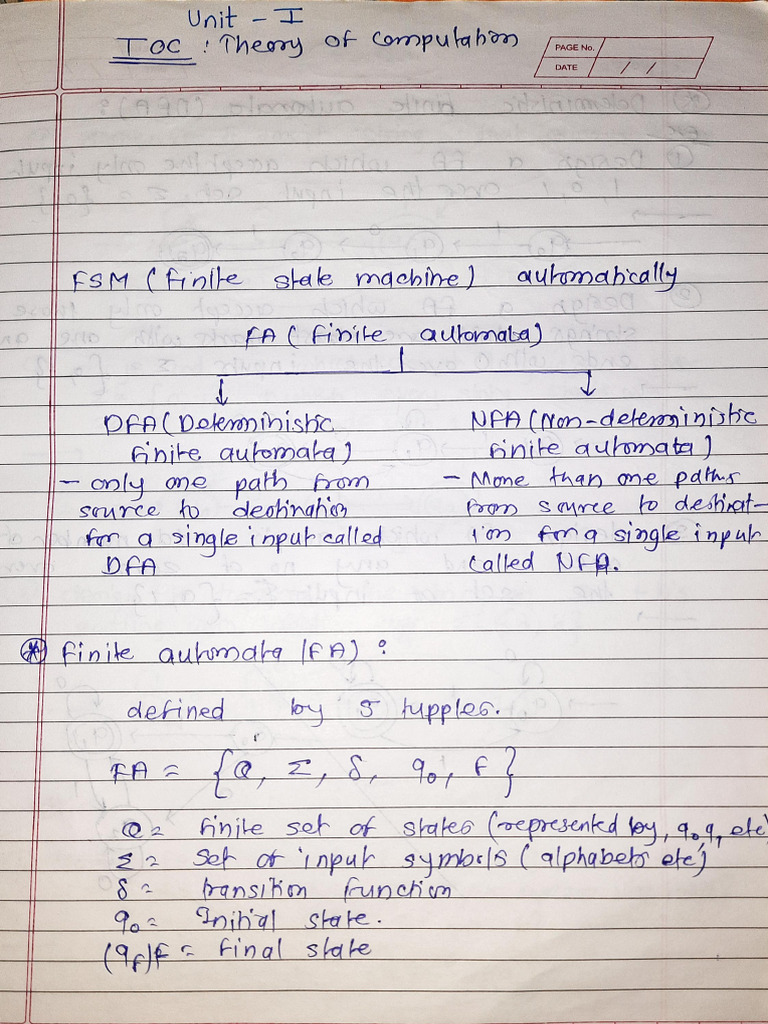 Unit - I
TOC : Theory of Computation
PAGE No.
DATE / /
FSM (Finite state machine) automatically
FA (Finite automata)
DFA (Deterministic
finite automata)
- only one path from
source to destination
for a single input called
DFA
NFA (Non-deterministic
finite automata)
- More than one paths
from source to destinat-
ion for a single input
called NFA.
* Finite automata (FA) :
defined by 5 tupples.
FA = {Q, Σ, δ, q₀, F}
Q = Finite set of states (represented by, q₀, q₁ etc)
Σ = Set of input symbols (alphabets etc)
δ = transition function
q₀ = Initial state.
(qf) F = Final state